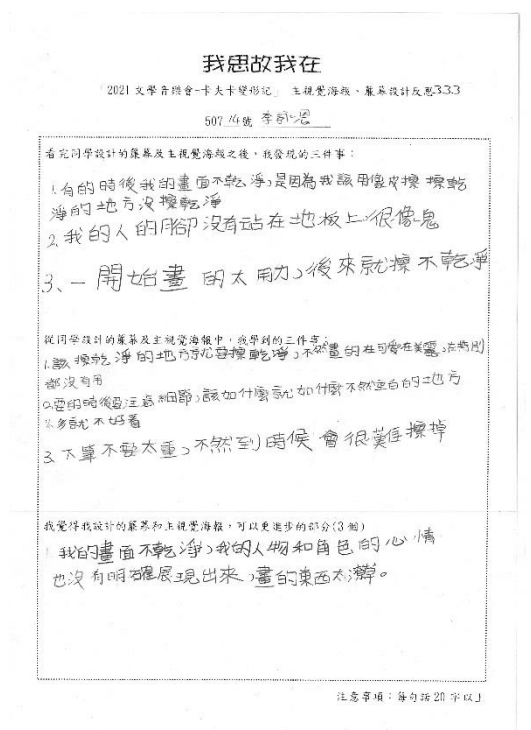 我思故我在
「2021 文學音樂會-卡夫卡變形記」 主視覺海報、簾幕設計反思333
507 14號 李
看完同學設計的簾幕及主視覺海報之後,我發現的三件事:
1.有的時後我的畫面不乾淨,是因為我該用橡皮擦擦乾
淨的地方沒擦乾淨
2.我的人的腳沒有站在地板上,很像鬼
3、一開始畫的太用力,後來就擦不乾淨
從同學設計的簾幕及主視覺海報中,我學到的三件事:
1.該擦乾淨的地方就要擦乾淨,不然畫的在可愛在美麗,在
都沒有用
2.要的時後要注意細節,該如什麼就如什麼不然空白的地方
太多就不好看
3.下筆不要太重,不然到時候會很難擦掉
我覺得我設計的簾幕和主視覺海報,可以更進步的部分(3個)
1.我的畫面不乾淨,我的人物和角色的心情
也沒有明確展現出來,畫的東西太潦草。
注意事項:每句話20字以